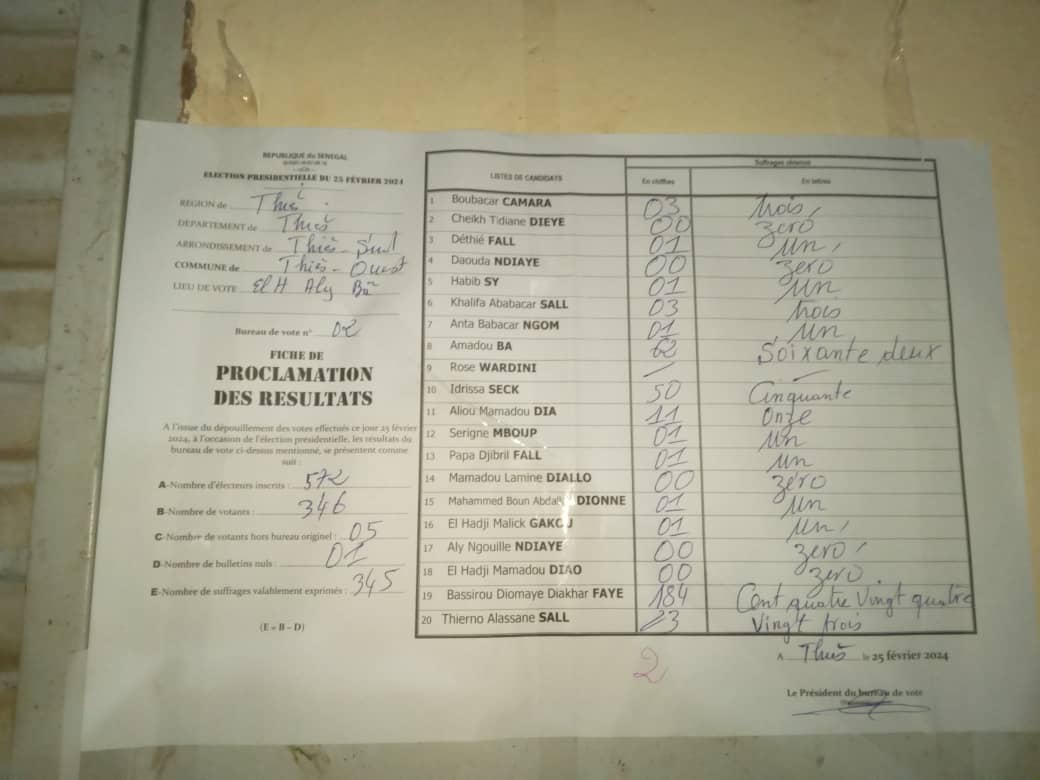 REPUBLIQUE du SENEGAL
ELECTION PRESIDENTIELLE DU 25 FÉVRIER 2024
REGION de Thiès
DEPARTEMENT de Thiès
ARRONDISSEMENT de Thiès-Sud
COMMUNE de Thiès-Ouest
LIEU DE VOTE El H Aly Bâ
Bureau de vote n° 02
FICHE DE
PROCLAMATION
DES RESULTATS
A l'issue du dépouillement des votes effectués ce jour 25 février
2024, à l'occasion de l'élection présidentielle, les résultats du
bureau de vote ci-dessus mentionné, se présentent comme
suit :
A-Nombre d'électeurs inscrits : 572
B-Nombre de votants : 346
C-Nombre de votants hors bureau originel : 05
D-Nombre de bulletins nuls : 01
E-Nombre de suffrages valablement exprimés : 345
(E = B – D)
Suffrages obtenus
LISTES DE CANDIDATS En chiffres En lettres
1 Boubacar CAMARA 03 trois
2 Cheikh Tidiane DIEYE 00 zéro
3 Déthié FALL 01 un
4 Daouda NDIAYE 00 zero
5 Habib SY 01 un
6 Khalifa Ababacar SALL 03 trois
7 Anta Babacar NGOM 01 un
8 Amadou BA 62 Soixante deux
9 Rose WARDINI
10 Idrissa SECK 50 Cinquante
11 Aliou Mamadou DIA 11 Onze
12 Serigne MBOUP 01 un
13 Papa Djibril FALL 01 un
14 Mamadou Lamine DIALLO 00 zéro
15 Mahammed Boun Abdallah DIONNE 01 un
16 El Hadji Malick GAKOU 01 un
17 Aly Ngouille NDIAYE 00 zero
18 El Hadji Mamadou DIAO 00 zero
19 Bassirou Diomaye Diakhar FAYE 184 Cent quatre Vingt quatre
20 Thierno Alassane SALL 23 Vingt trois
2
A Thiès le 25 février 2024
Le Président du bureau de vote